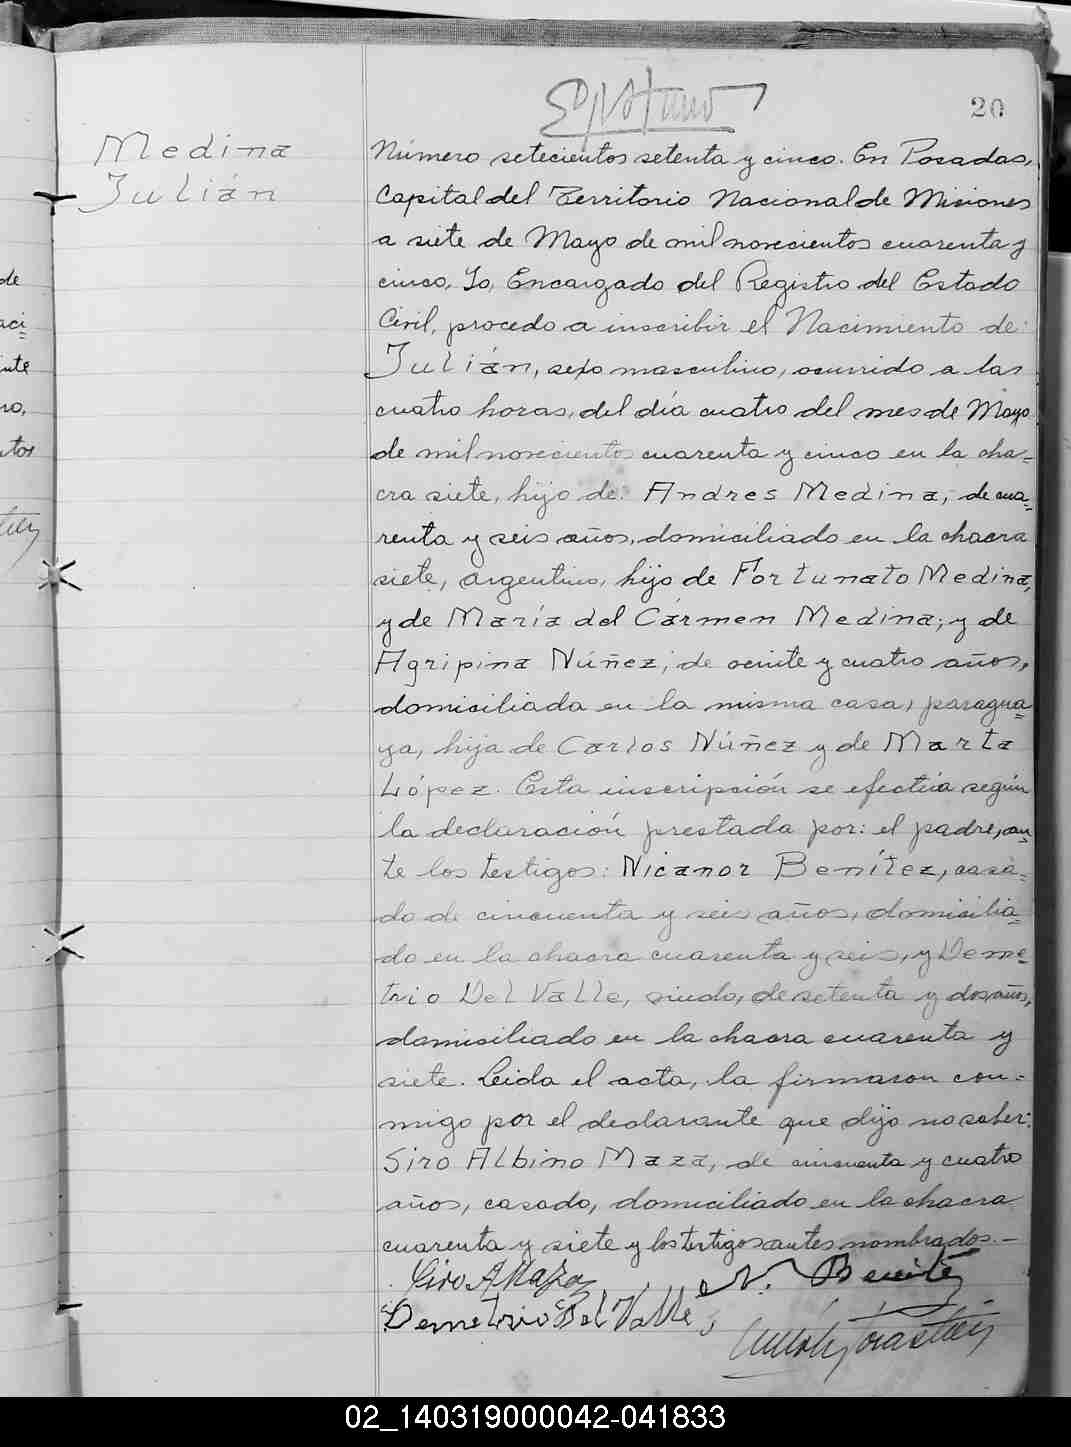 20
Medina
Julián
Número setecientos setenta y cinco. En Posadas,
Capital del Territorio Nacional de Misiones
a siete de Mayo de mil novecientos cuarenta y
cinco, Yo, Encargado del Registro del Estado
Civil, procedo a inscribir el Nacimiento de:
Julián, sexo masculino, ocurrido a las
cuatro horas, del día cuatro del mes de Mayo
de mil novecientos cuarenta y cinco en la cha=
cra siete, hijo de: Andres Medina, de cua=
renta y seis años, domiciliado en la chacra
siete, argentino, hijo de Fortunato Medina,
y de María del Cármen Medina; y de
Agripina Núñez, de veinte y cuatro años,
domiciliada en la misma casa, paragua=
ya, hija de Carlos Núñez y de Marta
López. Esta inscripsión se efectúa según
la declaración prestada por: el padre, an=
te los testigos: Nicanor Benítez, casa=
do de cincuenta y seis años, domicilia=
do en la chacra cuarenta y seis, y Deme=
trio Del Valle, viudo, de setenta y dos años,
domiciliado en la chacra cuarenta y
siete. Leida el acta, la firmaron con=
migo por el declarante que dijo no saber:
Siro Albino Maza, de cincuenta y cuatro
años, casado, domiciliado en la chacra
cuarenta y siete y los testigos antes nombrados.—
Ciro A Maza
N. Benitez
Demetrio Del Valle
de
aci=
nte
no,
tos
02_140319000042-041833